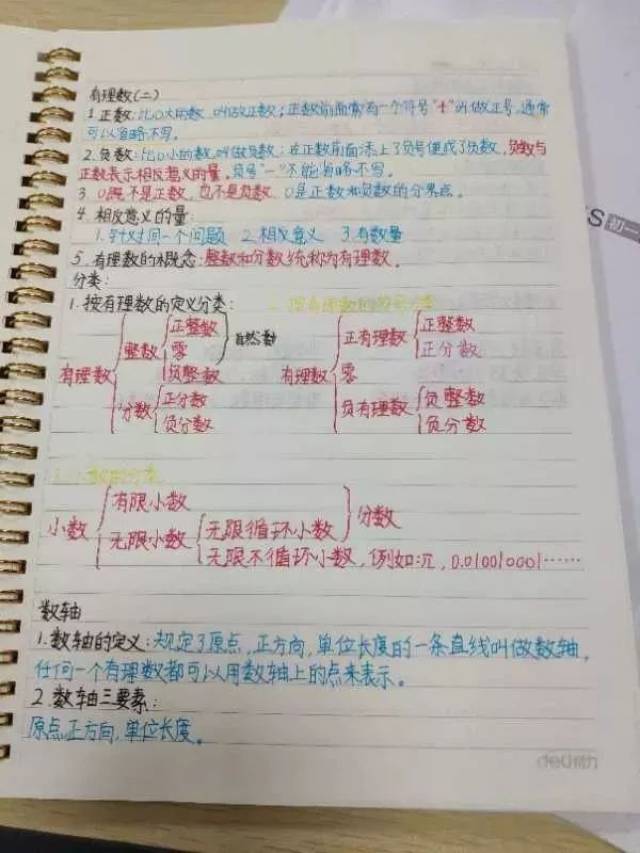 有理数(二)
1.正数:比0大的数,叫做正数;正数前面常有一个符号"+"叫做正号,通常
可以省略不写。
2.负数:比0小的数,叫做负数;在正数前面添上了负号便成了负数,负数与
正数表示相反意义的量。负号"-"不能省略不写。
3.0既不是正数,也不是负数。0是正数和负数的分界点。
4.相反意义的量:
1.针对同一个问题 2.相反意义 3.有数量
S 初一
5.有理数的概念:整数和分数统称为有理数。
分类:
1.按有理数的定义分类:
正整数 正整数
整数 零 自然数 正有理数 正分数
有理数 负整数 有理数 零
分数 正分数 负有理数 负整数
负分数 负分数
有限小数
小数 无限小数 无限循环小数 分数
无限不循环小数,例如:π,0.010010001……
数轴
1.数轴的定义:规定了原点,正方向,单位长度的一条直线叫做数轴,
任何一个有理数都可以用数轴上的点来表示。
2.数轴三要素:
原点,正方向,单位长度。